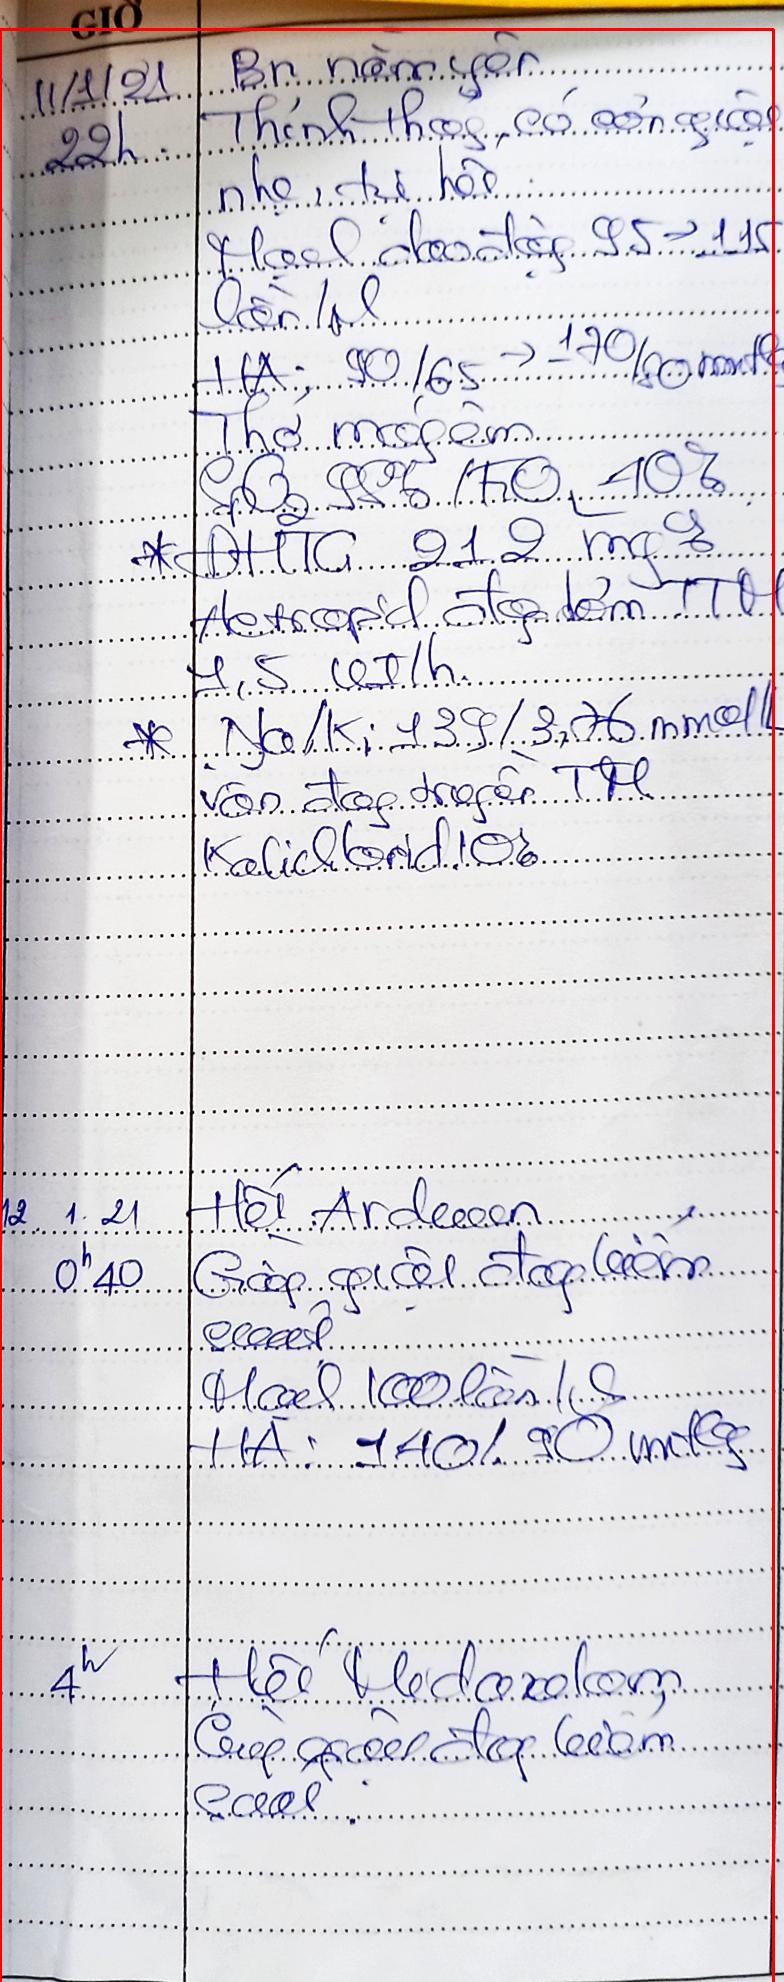 GIỜ
11/1/21 Bn nằm yên
22h Thỉnh thoảng có cơn giật
nhẹ, tự hết
Mạch dao động 95 → 115
lần/ph
HA: 90/65 → 170/90 mmHg
Thở máy êm
SpO2 98% / FiO2 40%
* ĐHTC 212 mg%
Actrapid đang bơm TTĐ
1,5 UI/h
* Na/K: 139/3,76 mmol/L
vẫn đang truyền TM
Kaliclorid 10%
12.1.21 Hết Arduan
0h40 Còn giật đang kiểm
soát
Mạch 100 lần/ph
HA: 140/90 mmHg
4h Hết Midazolam
giật đang kiểm
soát